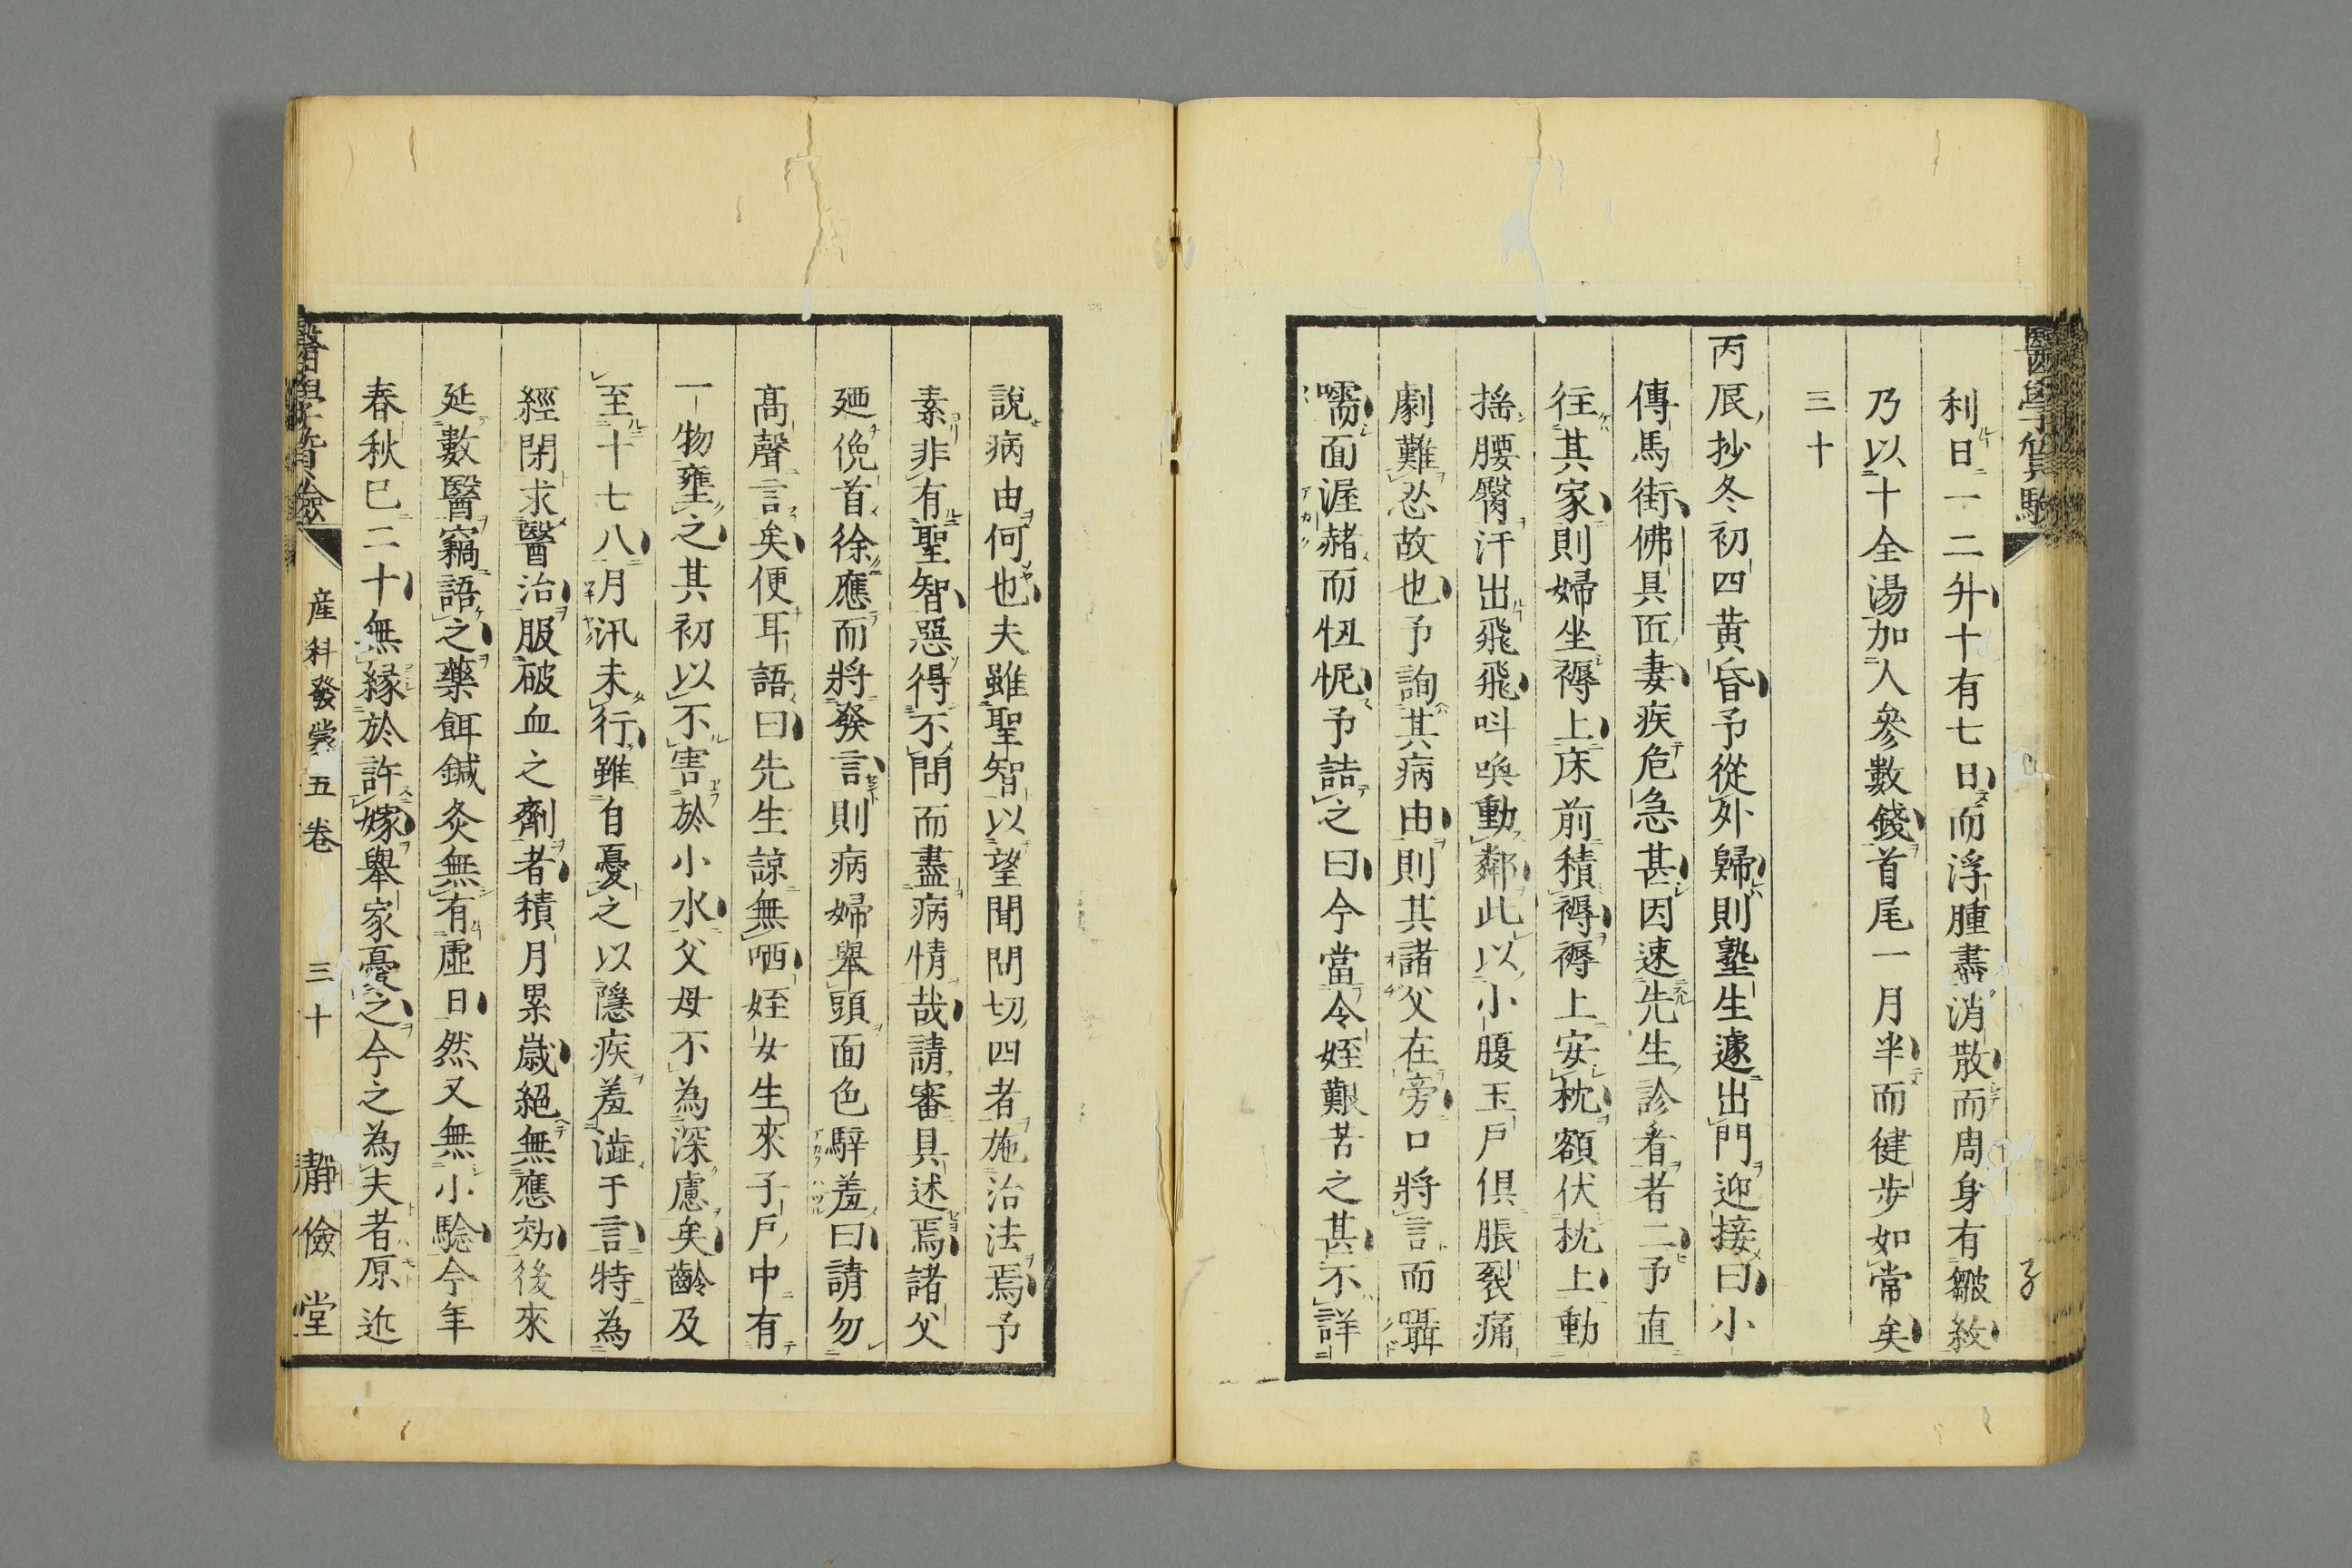 利日一二升十有七日而浮腫盡消散而周身有皺紋
乃以十全湯加人參數錢首尾一月半而健步如常矣
三十
丙辰抄冬初四黄昏予從外歸則塾生遽出門迎接曰小
傳馬街佛具匠妻疾危急甚因速先生診看者二予直
往其家則婦坐褥上床前積褥褥上安枕額伏枕上動
搖腰臀汗出飛飛呌喚動鄰此以小腹玉戸倶脹裂痛
劇難忍故也予詢其病由則其諸父在旁口將言而囁
嚅面渥赭而忸怩予詰之曰今當令姪艱苦之甚不詳
說病由何也夫雖聖智以望聞問切四者施治法焉予
素非有聖智惡得不問而盡病情哉請審具述焉諸父
廼俛首徐應而將發言則病婦舉頭面色騂羞曰請勿
高聲言矣便耳語曰先生諒無哂姪女生來子戸中有
一物壅之其初以不害於小水父母不為深慮矣齡及
至十七八月汛未行雖自憂之以隱疾羞澁于言特為
經閉求醫治服破血之劑者積月累歲絕無應効後來
延數醫竊語之藥餌鍼灸無有虛日然又無小驗今年
春秋已二十無緣於許嫁舉家憂之今之為夫者原近
産科發蒙五卷 三十 靜儉堂